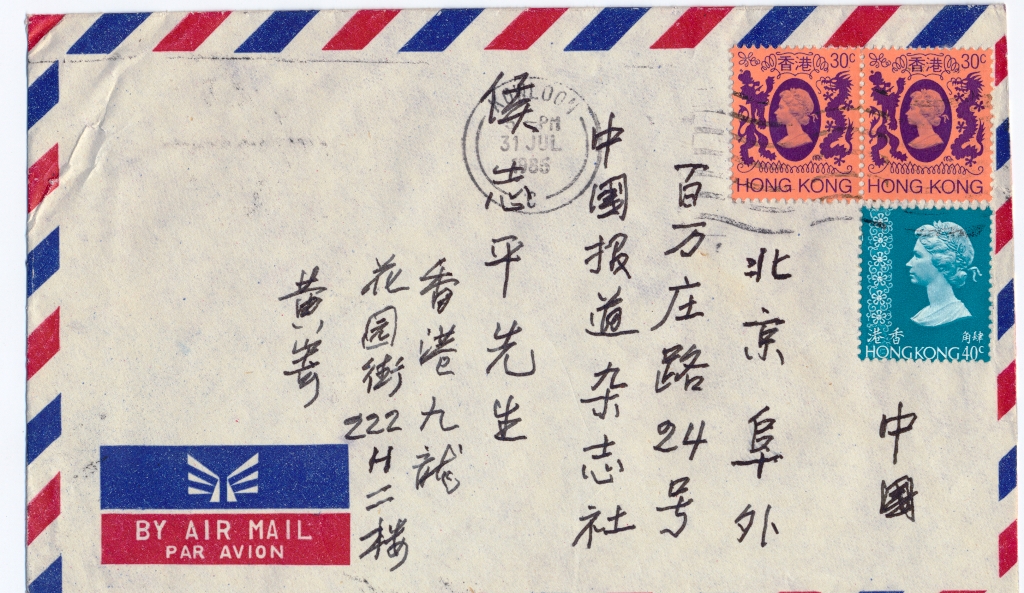 中國
北京阜外
百万庄路24号
中國报道杂志社
侯志平先生
香港九龙
花园街222H二楼
黄嵜
KOWLOON
PM
31 JUL
1986
香港 30c
HONG KONG
香港 30c
HONG KONG
香港 肆角
HONG KONG 40c
BY AIR MAIL
PAR AVION